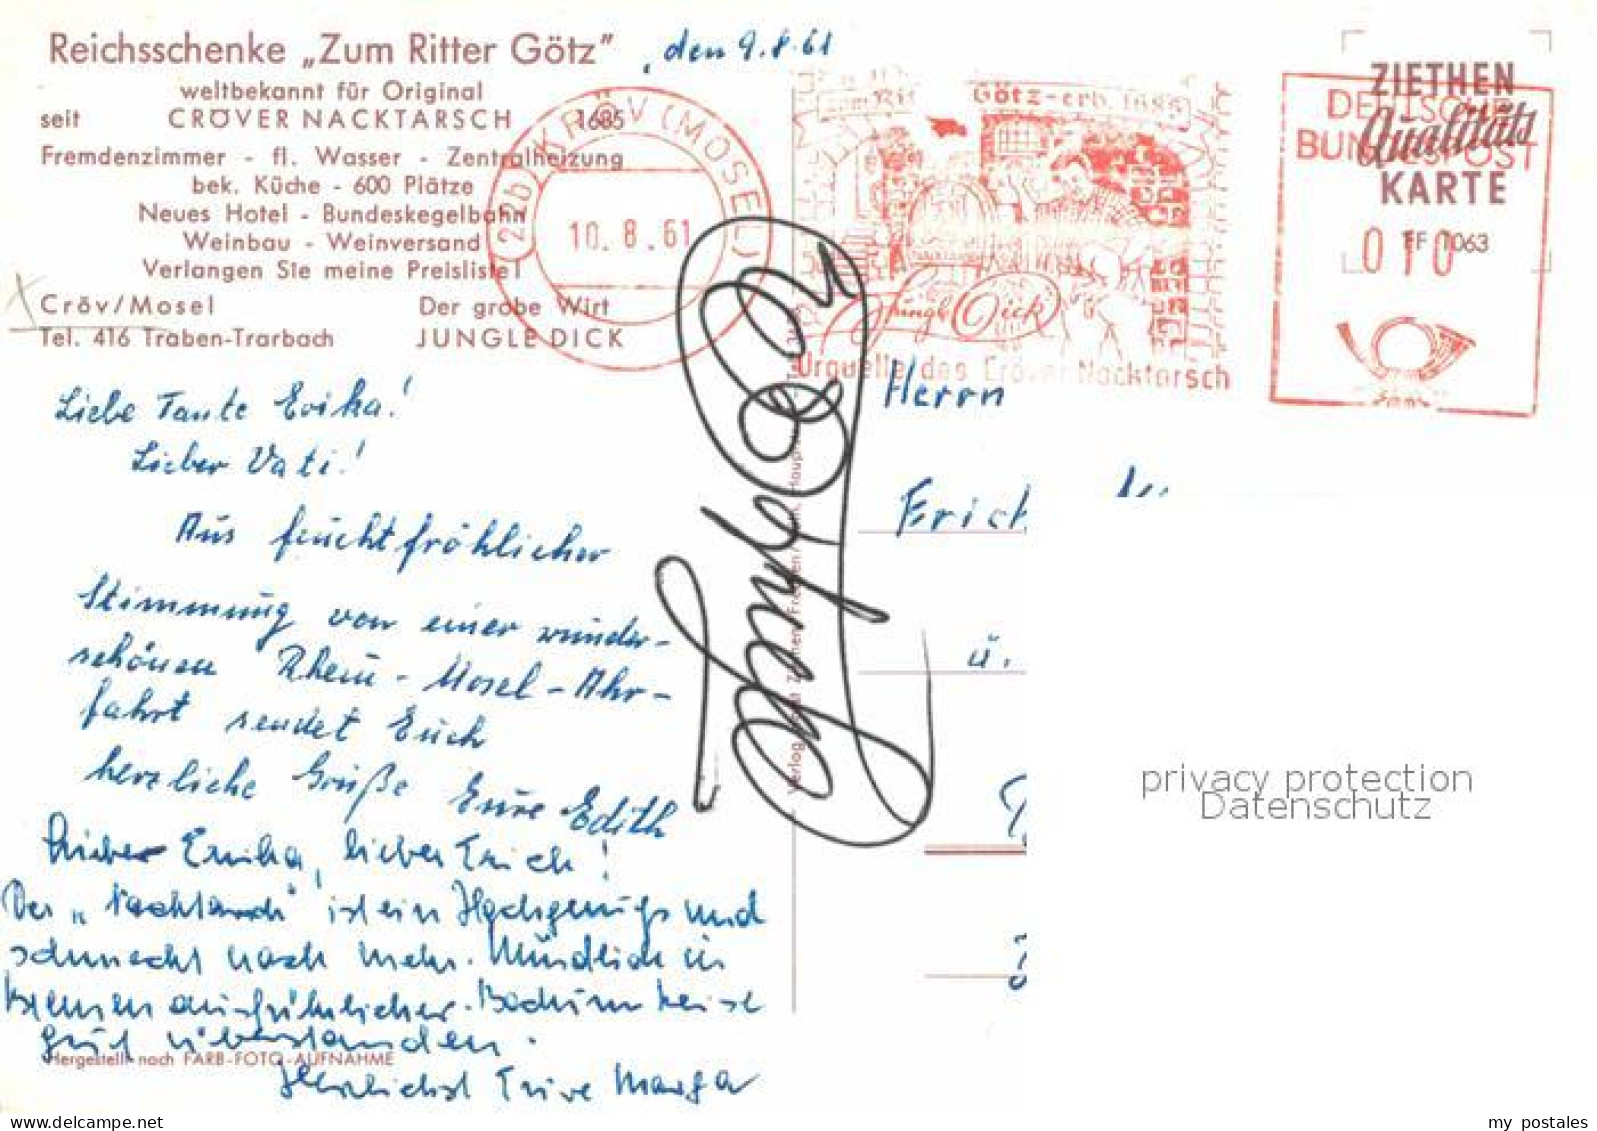 Reichsschenke „Zum Ritter Götz"
weltbekannt für Original
seit CRÖVER NACKTARSCH 1685
Fremdenzimmer - fl. Wasser - Zentralheizung
bek. Küche - 600 Plätze
Neues Hotel - Bundeskegelbahn
Weinbau - Weinversand
Verlangen Sie meine Preisliste!
Cröv/Mosel Der grobe Wirt
Tel. 416 Traben-Trarbach JUNGLE DICK
, den 9.8.61
(22b) KRÖV (MOSEL)
10.8.61
Götz-erb. 1685
Jungle Dick
Urquelle des Cröver Nacktarsch
DEUTSCHE
BUNDESPOST
010
ZIETHEN
Qualitäts
KARTE
FF 1063
Liebe Tante Erika!
Lieber Vati!
Aus feuchtfröhlicher
Stimmung von einer wunder-
schönen Rhein-Mosel-Ahr-
fahrt sendet Euch
herzliche Grüße Eure Edith
Erika, lieber Erich!
Der „ " ist ein und
schmeckt nach mehr. Mündlich in
Bremen ausführlicher.
gut überstanden.
Herzlichst Eure Marga
Hergestellt nach FARB-FOTO-AUFNAHME
Herrn
Erich
u.
privacy protection
Datenschutz
my postales